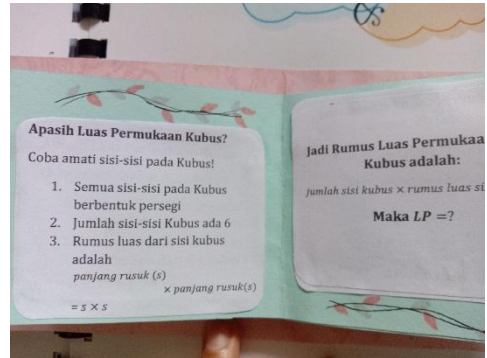 Apasih Luas Permukaan Kubus?
Coba amati sisi-sisi pada Kubus!
1. Semua sisi-sisi pada Kubus
berbentuk persegi
2. Jumlah sisi-sisi Kubus ada 6
3. Rumus luas dari sisi kubus
adalah
panjang rusuk (s)
× panjang rusuk(s)
= s × s
Jadi Rumus Luas Permukaa
Kubus adalah:
jumlah sisi kubus × rumus luas si
Maka LP =?